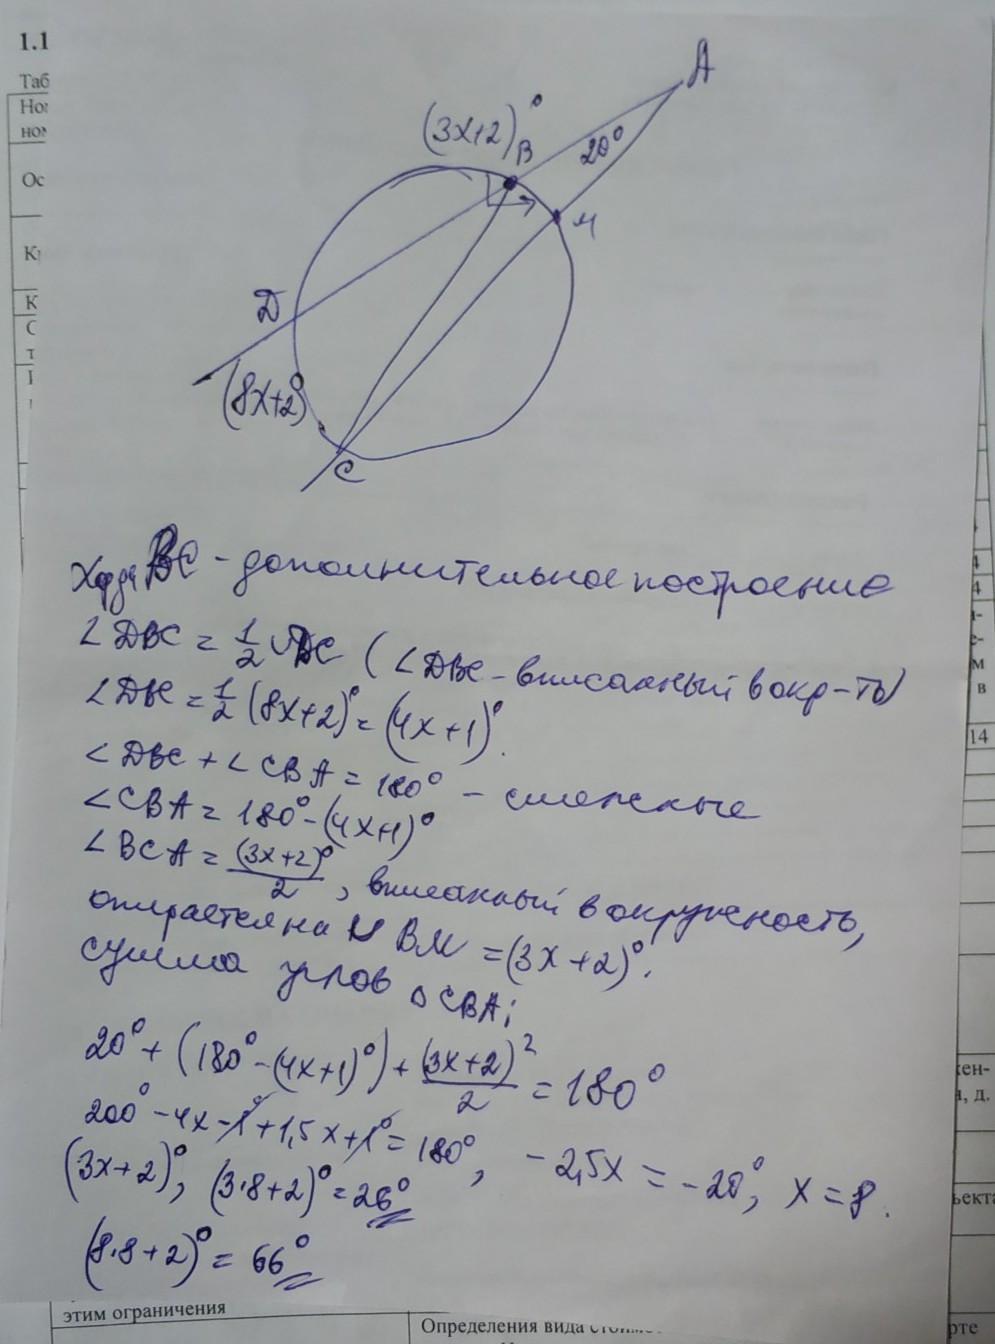 1.1
Таб
Но
но
Ос
К
К
С
т
А
(3x+2)°
B
20°
М
D
(8x+2)°
C
Хорда BC - дополнительное построение
∠DBC = 1/2 ◡DC (∠DBC - вписанный в окр-ть)
∠DBC = 1/2 (8x+2)° = (4x+1)°.
∠DBC + ∠CBA = 180° - смежные
∠CBA = 180° - (4x+1)°
∠BCA = (3x+2)°/2, вписанный в окружность,
опирается на ◡ BM = (3x+2)°.
сумма углов △CBA;
20° + (180° - (4x+1)°) + (3x+2)²/2 = 180°
200° - 4x - 1° + 1,5x + 1° = 180°, - 2,5x = - 20°, x = 8.
(3x+2)°; (3·8+2)° = 26°
(8·8+2)° = 66°
4
4
м
в
14
ен-
а, д.
ъекта
этим ограничения
Определения вида
рте